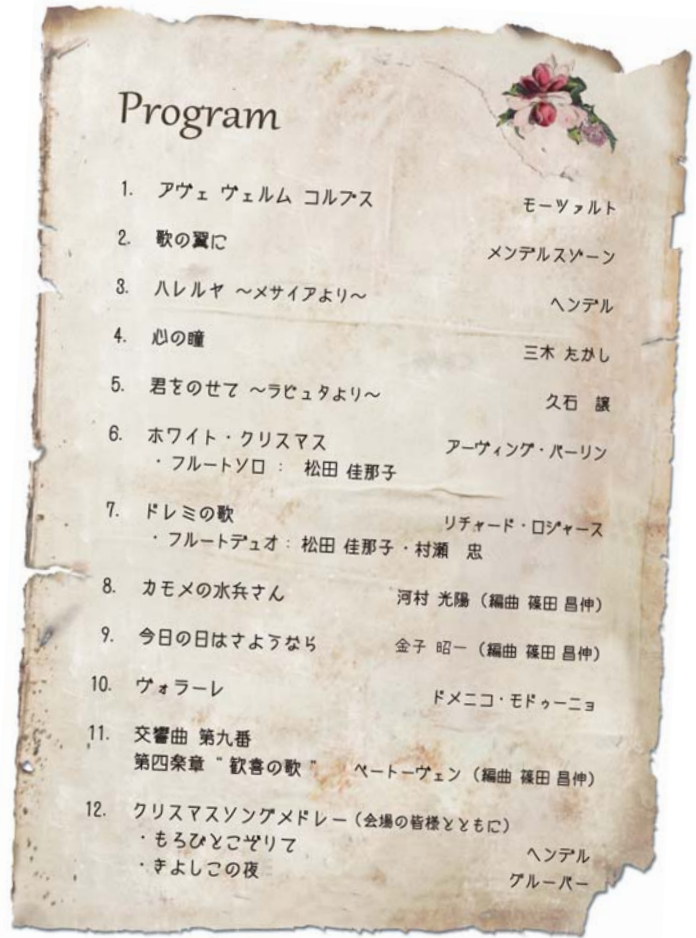 Program
1. アヴェ ヴェルム コルプス モーツァルト
2. 歌の翼に メンデルスゾーン
3. ハレルヤ ～メサイアより～ ヘンデル
4. 心の瞳 三木 たかし
5. 君をのせて ～ラピュタより～ 久石 譲
6. ホワイト・クリスマス アーヴィング・バーリン
・フルートソロ： 松田 佳那子
7. ドレミの歌 リチャード・ロジャース
・フルートデュオ：松田 佳那子・村瀬 忠
8. カモメの水兵さん 河村 光陽（編曲 篠田 昌伸）
9. 今日の日はさようなら 金子 昭一（編曲 篠田 昌伸）
10. ヴォラーレ ドメニコ・モドゥーニョ
11. 交響曲 第九番
第四楽章 “歓喜の歌” ベートーヴェン（編曲 篠田 昌伸）
12. クリスマスソングメドレー（会場の皆様とともに）
・もろびとこぞりて ヘンデル
・きよしこの夜 グルーバー